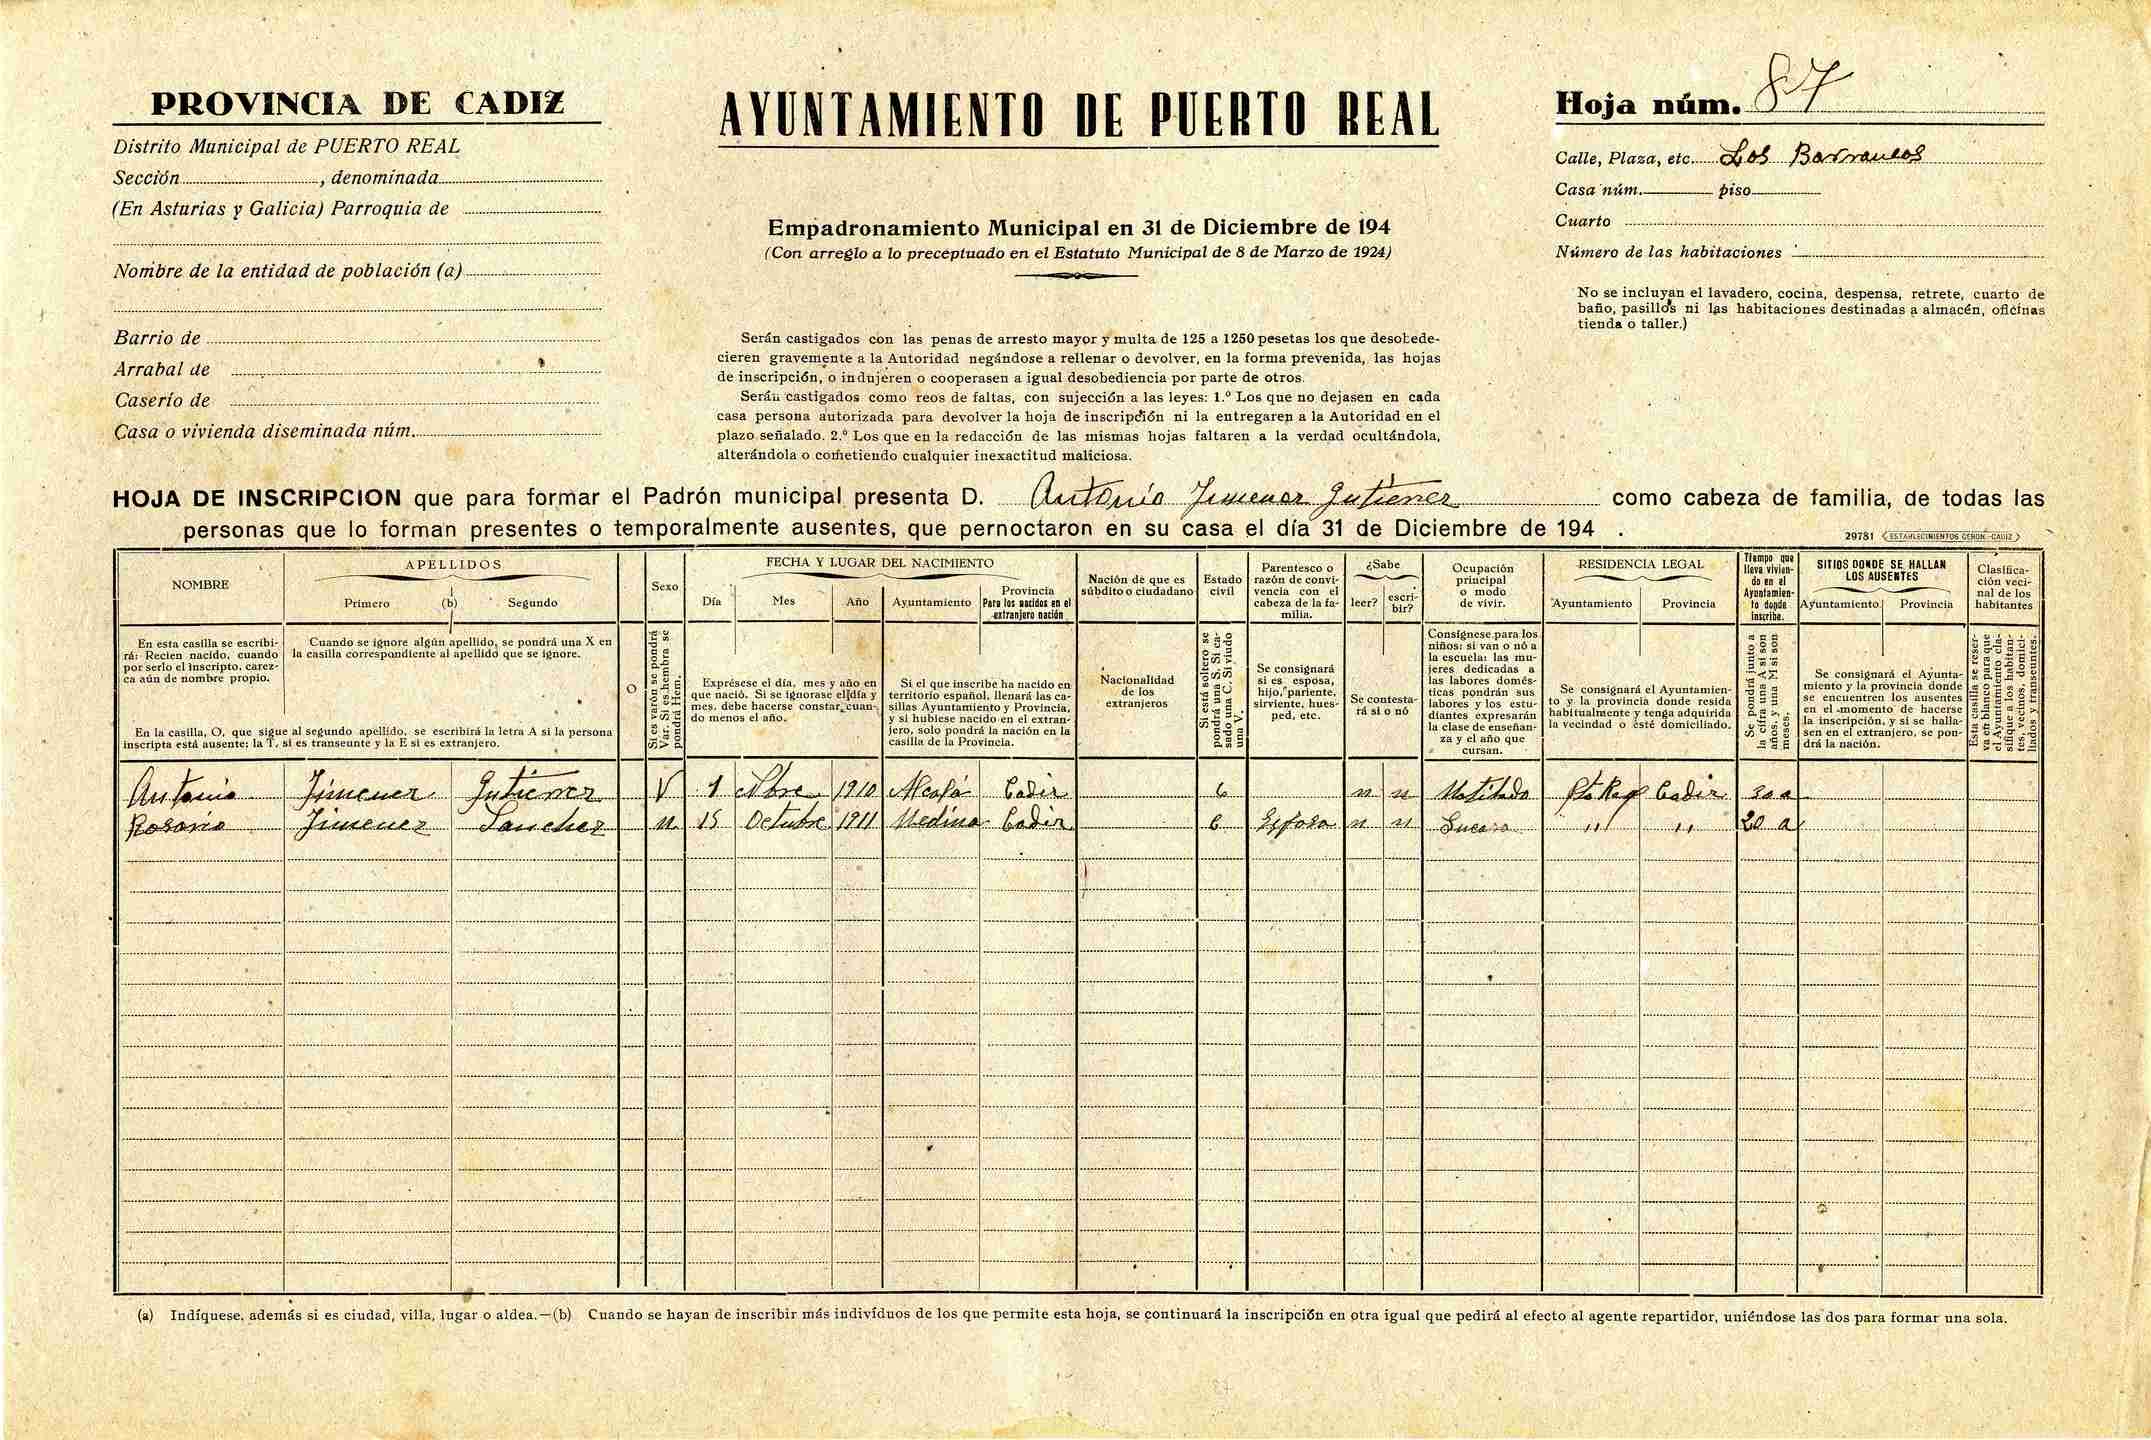 PROVINCIA DE CADIZ
Distrito Municipal de PUERTO REAL
Sección , denominada
(En Asturias y Galicia) Parroquia de
Nombre de la entidad de población (a)
Barrio de
Arrabal de
Caserío de
Casa o vivienda diseminada núm.
AYUNTAMIENTO DE PUERTO REAL
Empadronamiento Municipal en 31 de Diciembre de 194
(Con arreglo a lo preceptuado en el Estatuto Municipal de 8 de Marzo de 1924)
Serán castigados con las penas de arresto mayor y multa de 125 a 1250 pesetas los que desobede-
cieren gravemente a la Autoridad negándose a rellenar o devolver, en la forma prevenida, las hojas
de inscripción, o indujeren o cooperasen a igual desobediencia por parte de otros.
Serán castigados como reos de faltas, con sujección a las leyes: 1.º Los que no dejasen en cada
casa persona autorizada para devolver la hoja de inscripción ni la entregaren a la Autoridad en el
plazo señalado. 2.º Los que en la redacción de las mismas hojas faltaren a la verdad ocultándola,
alterándola o cometiendo cualquier inexactitud maliciosa.
Hoja núm. 87
Calle, Plaza, etc. Los Barrancos
Casa núm. piso
Cuarto
Número de las habitaciones
No se incluyan el lavadero, cocina, despensa, retrete, cuarto de
baño, pasillos ni las habitaciones destinadas a almacén, oficinas
tienda o taller.)
HOJA DE INSCRIPCION que para formar el Padrón municipal presenta D. Antonio Jimenez Gutierrez como cabeza de familia, de todas las
personas que lo forman presentes o temporalmente ausentes, que pernoctaron en su casa el día 31 de Diciembre de 194 .
29781 ESTABLECIMIENTOS CERON-CADIZ
NOMBRE
En esta casilla se escribi-
rá: Recien nacido, cuando
por serlo el inscripto, carez-
ca aún de nombre propio.
APELLIDOS
Primero (b) Segundo
Cuando se ignore algún apellido, se pondrá una X en
la casilla correspondiente al apellido que se ignore.
En la casilla, O, que sigue al segundo apellido, se escribirá la letra A si la persona
inscripta está ausente; la T, si es transeunte y la E si es extranjero.
O
Sexo
Si es varón se pondrá
Var. Si es hembra se
pondrá Hem.
FECHA Y LUGAR DEL NACIMIENTO
Día Mes Año Ayuntamiento
Provincia
Para los nacidos en el
extranjero nación
Exprésese el día, mes y año en
que nació. Si se ignorase el día y
mes, debe hacerse constar, cuan-
do menos el año.
Si el que inscribe ha nacido en
territorio español, llenará las ca-
sillas Ayuntamiento y Provincia,
y si hubiese nacido en el extran-
jero, solo pondrá la nación en la
casilla de la Provincia.
Nación de que es
súbdito o ciudadano
Nacionalidad
de los
extranjeros
Estado
civil
Si está soltero se
pondrá una S. Si ca-
sado una C. Si viudo
una V.
Parentesco o
razón de convi-
vencia con el
cabeza de la fa-
milia.
Se consignará
si es esposa,
hijo, pariente,
sirviente, hues-
ped, etc.
¿Sabe
leer? escri-
bir?
Se contesta-
rá si o nó
Ocupación
principal
o modo
de vivir.
Consígnese para los
niños: si van o nó a
la escuela: las mu-
jeres dedicadas a
las labores domés-
ticas pondrán sus
labores y los estu-
diantes expresarán
la clase de enseñan-
za y el año que
cursan.
RESIDENCIA LEGAL
Ayuntamiento Provincia
Se consignará el Ayuntamien-
to y la provincia donde resida
habitualmente y tenga adquirida
la vecindad o esté domiciliado.
Tiempo que
lleva vivien-
do en el
Ayuntamien-
to donde
inscribe.
Se pondrá junto a
la cifra una A si son
años, y una M si son
meses.
SITIOS DONDE SE HALLAN
LOS AUSENTES
Ayuntamiento Provincia
Se consignará el Ayunta-
miento y la provincia donde
se encuentren los ausentes
en el momento de hacerse
la inscripción, y si se halla-
sen en el extranjero, se pon-
drá la nación.
Clasifica-
ción veci-
nal de los
habitantes
Esta casilla se reser-
va en blanco para que
el Ayuntamiento cla-
sifique a los habitan-
tes, vecinos, domici-
liados y transeuntes.
Antonio Jimenez Gutierrez V 1 1910 Alcalá Cadiz C n n Pto Real Cadiz 30 a
Rosario Jimenez Sanchez 15 Octubre 1911 Medina Cadiz C Esposa n n Su casa " " 20 a
(a) Indíquese, además si es ciudad, villa, lugar o aldea.—(b) Cuando se hayan de inscribir más indivíduos de los que permite esta hoja, se continuará la inscripción en otra igual que pedirá al efecto al agente repartidor, uniéndose las dos para formar una sola.